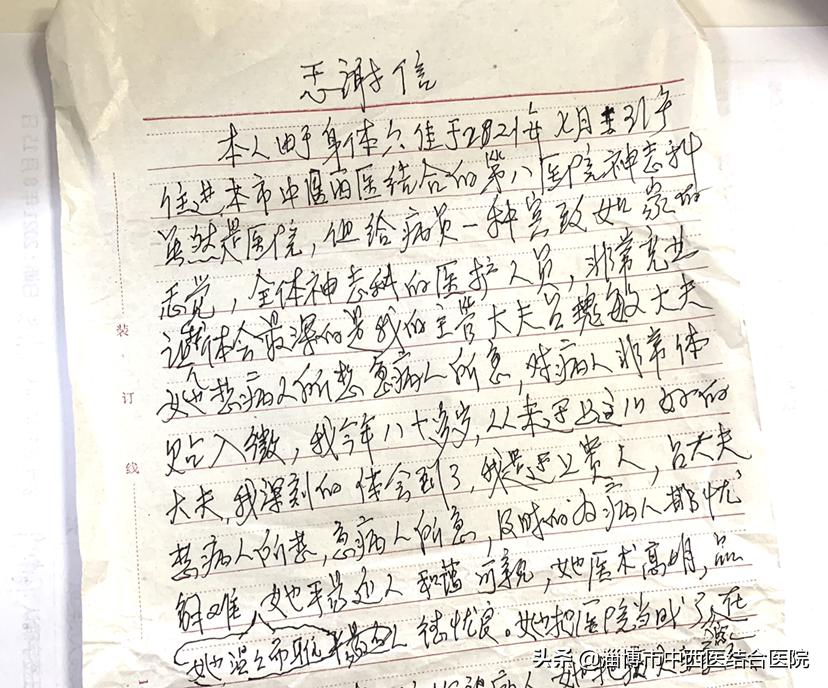 感谢信
本人由于身体欠佳于2021年七月31号
住进本市中医西医结合的第八医院神志科
虽然是医院，但给病员一种宾致如家的
感觉，全体神志科的医护人员，非常充业
让人体会最深的是我的主管大夫吕艳敏大夫
她想病人所想急病人所急，对病人非常体
贴入微，我今年八十多岁，从来没遇这么好的
大夫，我深刻的体会到了，我是遇上贵人，吕大夫
想病人所想，急病人所急，及时的为病人排忧
解难，她平易近人和蔼可亲，她医术高明，品
她温文而雅 德优良。她把医院当成了
装
订
线
头条@淄博市中西医结合医院